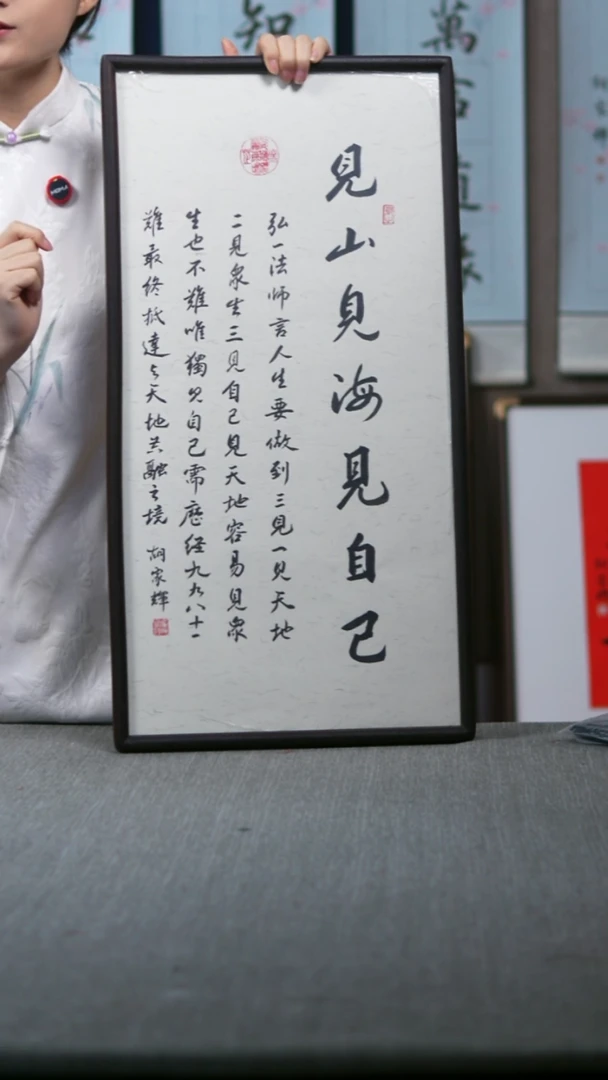 見山見海見自己
弘一法师言人生要做到三見一見天地
二見衆生三見自己見天地容易見衆
生也不難唯獨見自己需歷经九九八十一
難最终抵達与天地共融之境 胡家輝
知
萬古